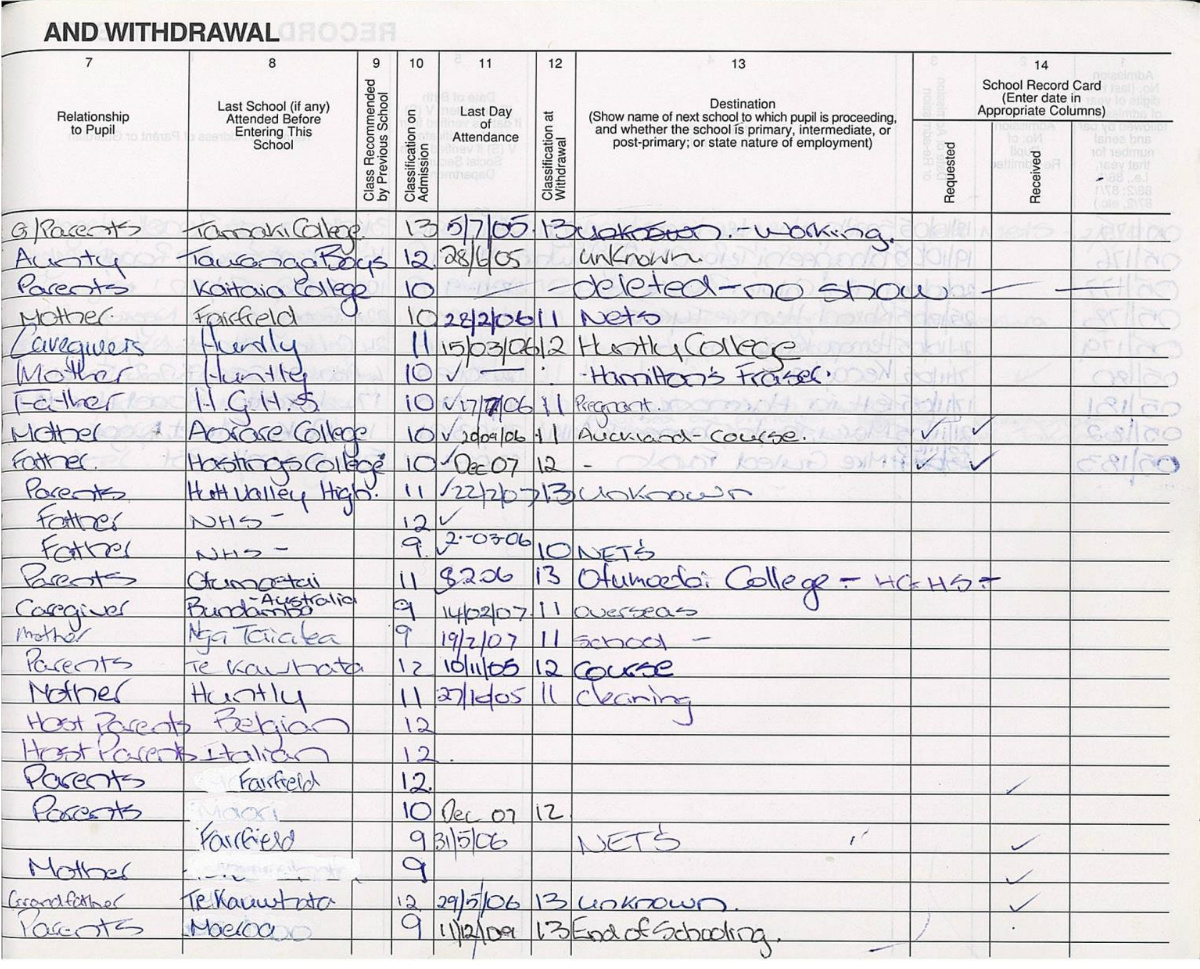 AND WITHDRAWAL
7 8 9 10 11 12 13 14
Relationship to Pupil
Last School (if any) Attended Before Entering This School
Class Recommended by Previous School
Classification on Admission
Last Day of Attendance
Classification at Withdrawal
Destination
(Show name of next school to which pupil is proceeding, and whether the school is primary, intermediate, or post-primary; or state nature of employment)
School Record Card (Enter date in Appropriate Columns)
Requested
Received
G/Parents Tamaki College 13 5/7/05 13 unknown - working.
Aunty Tauranga Boys 12 28/6/05 unknown
Parents Kaitaia College 10 — deleted - no show — —
Mother Fairfield 10 28/2/06 11 Nets
Caregivers Huntly 11 15/03/06 12 Huntly College
Mother Huntly 10 ✓ — - Hamilton's Fraser.
Father H.G.H.S 10 ✓ 17/7/06 11 Pregnant.
Mother Aorere College 10 ✓ /06 11 Auckland - Course. ✓ ✓
Father. Hastings College 10 ✓ Dec 07 12 - ✓ ✓
Parents Hutt Valley High. 11 ✓ 22/2/07 13 unknown
Father NHS - 12 ✓
Father NHS - 9. ✓ 2-03-06 10 NETS
Parents Otumoetai 11 8.2.06 13 Otumoedai College - HGHS -
Caregiver Bundamba - Australia 9 14/02/07 11 overseas
Mother Nga Taiatea 9 19/2/07 11 school -
Parents Te Kauwhata 12 10/11/05 12 Course
Mother Huntly 11 27/10/05 11 cleaning
Host Parents Belgian 12
Host Parents Italian 12.
Parents Fairfield 12. ✓
Parents Maori 10 Dec 07 12
Fairfield 9 31/5/06 NETS ✓
Mother 9 ✓
Grandfather Te Kauwhata 12 29/5/06 13 unknown. ✓
Parents 9 11/12/09 13 End of Schooling.